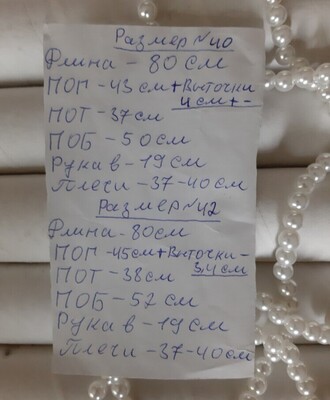 Размер №40
Длина - 80 см
ПОГ - 43 см + Выточки
4 см + -
ПОТ - 37 см
ПОБ - 50 см
Рукав - 19 см
Плечи - 37-40 см
Размер №42
Длина - 80 см
ПОГ - 45 см + Выточки -
3,4 см
ПОТ - 38 см
ПОБ - 52 см
Рукав - 19 см
Плечи - 37-40 см